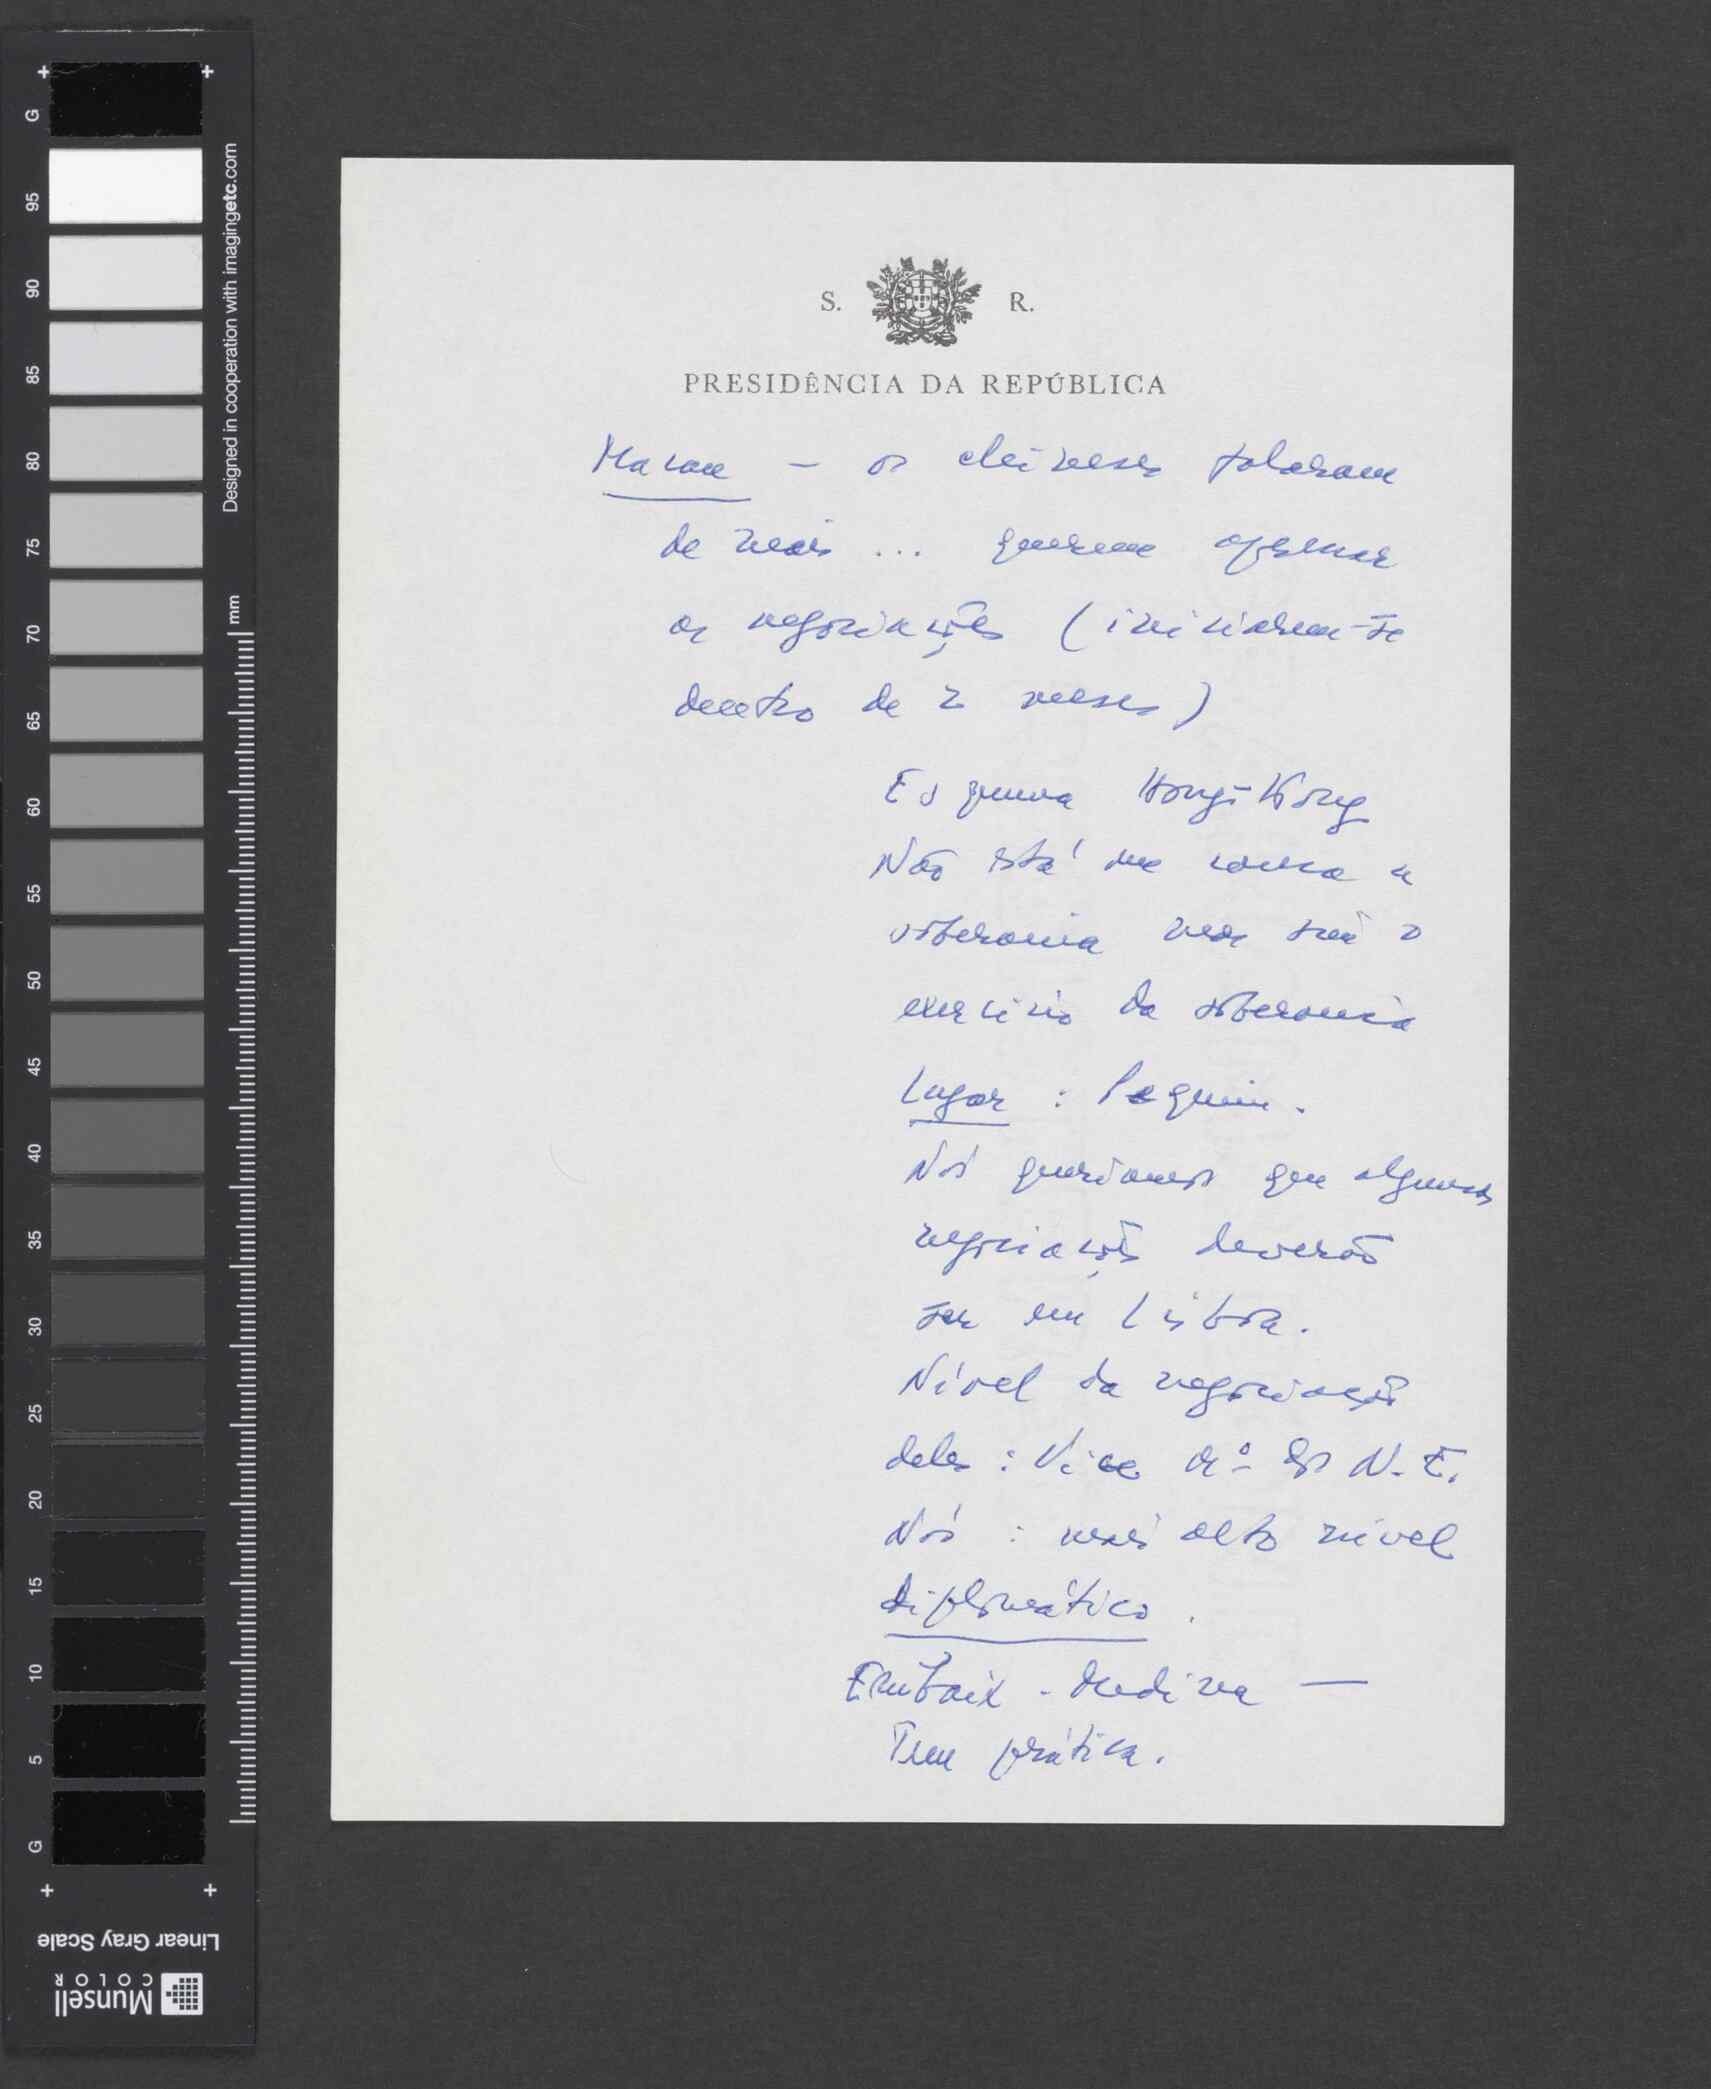 S. R.
PRESIDÊNCIA DA REPÚBLICA
Macau - os chineses falaram
de mais ... querem apressar
as negociações (iniciarem-se
dentro de 2 meses)
Esquema Hong-Kong
Não está em causa a
soberania mas sim o
exercício da soberania
Lugar : Pequim.
Nós queríamos que algumas
negociações deverão
ser em Lisboa.
Nível da negociação
deles : Vice Mº dos N. E.
Nós : mais alto nível
diplomático.
Embaix. Medina -
Tem prática.
G
95
90
85
80
75
70
65
60
55
50
45
40
35
30
25
20
15
10
5
G
Designed in cooperation with imagingetc.com
mm
Linear Gray Scale
Munsell
COLOR